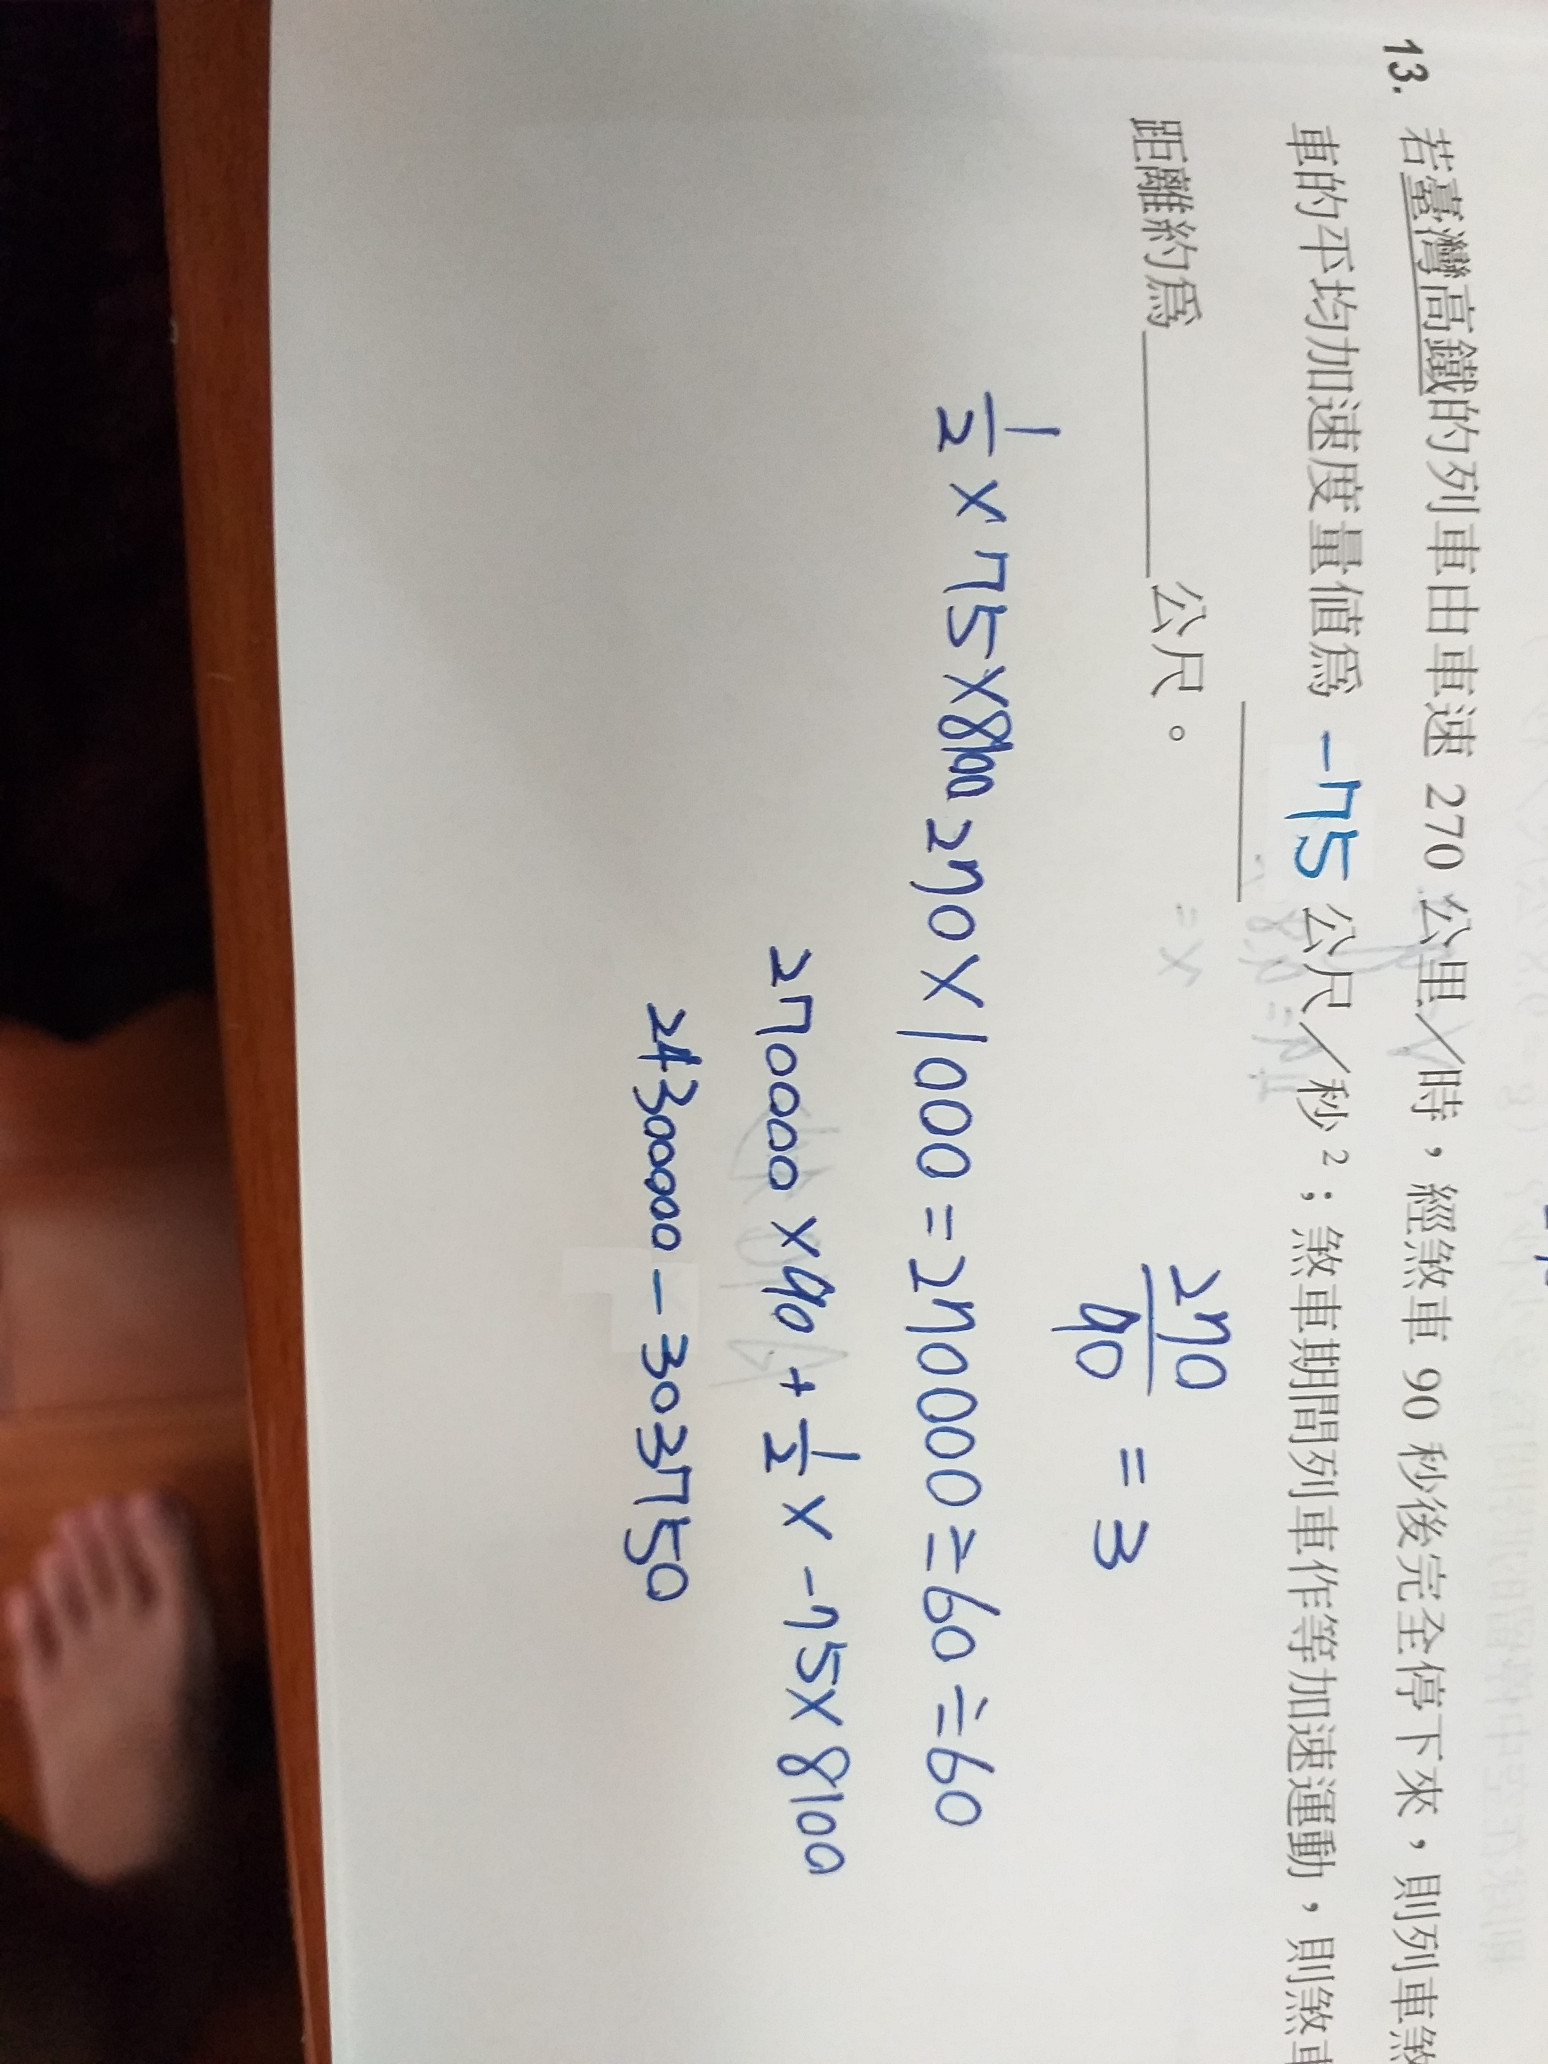 13. 若臺灣高鐵的列車由車速 270 公里／時，經煞車 90 秒後完全停下來，則列車煞
車的平均加速度量值為 -75 公尺／秒²；煞車期間列車作等加速運動，則煞車
距離約為＿＿＿＿公尺。
270/90 = 3
1/2 × 75 × 8100 270 × 1000 = 270000 ÷ 60 ÷ 60
270000 × 90 + 1/2 × -75 × 8100
24300000 - 303750